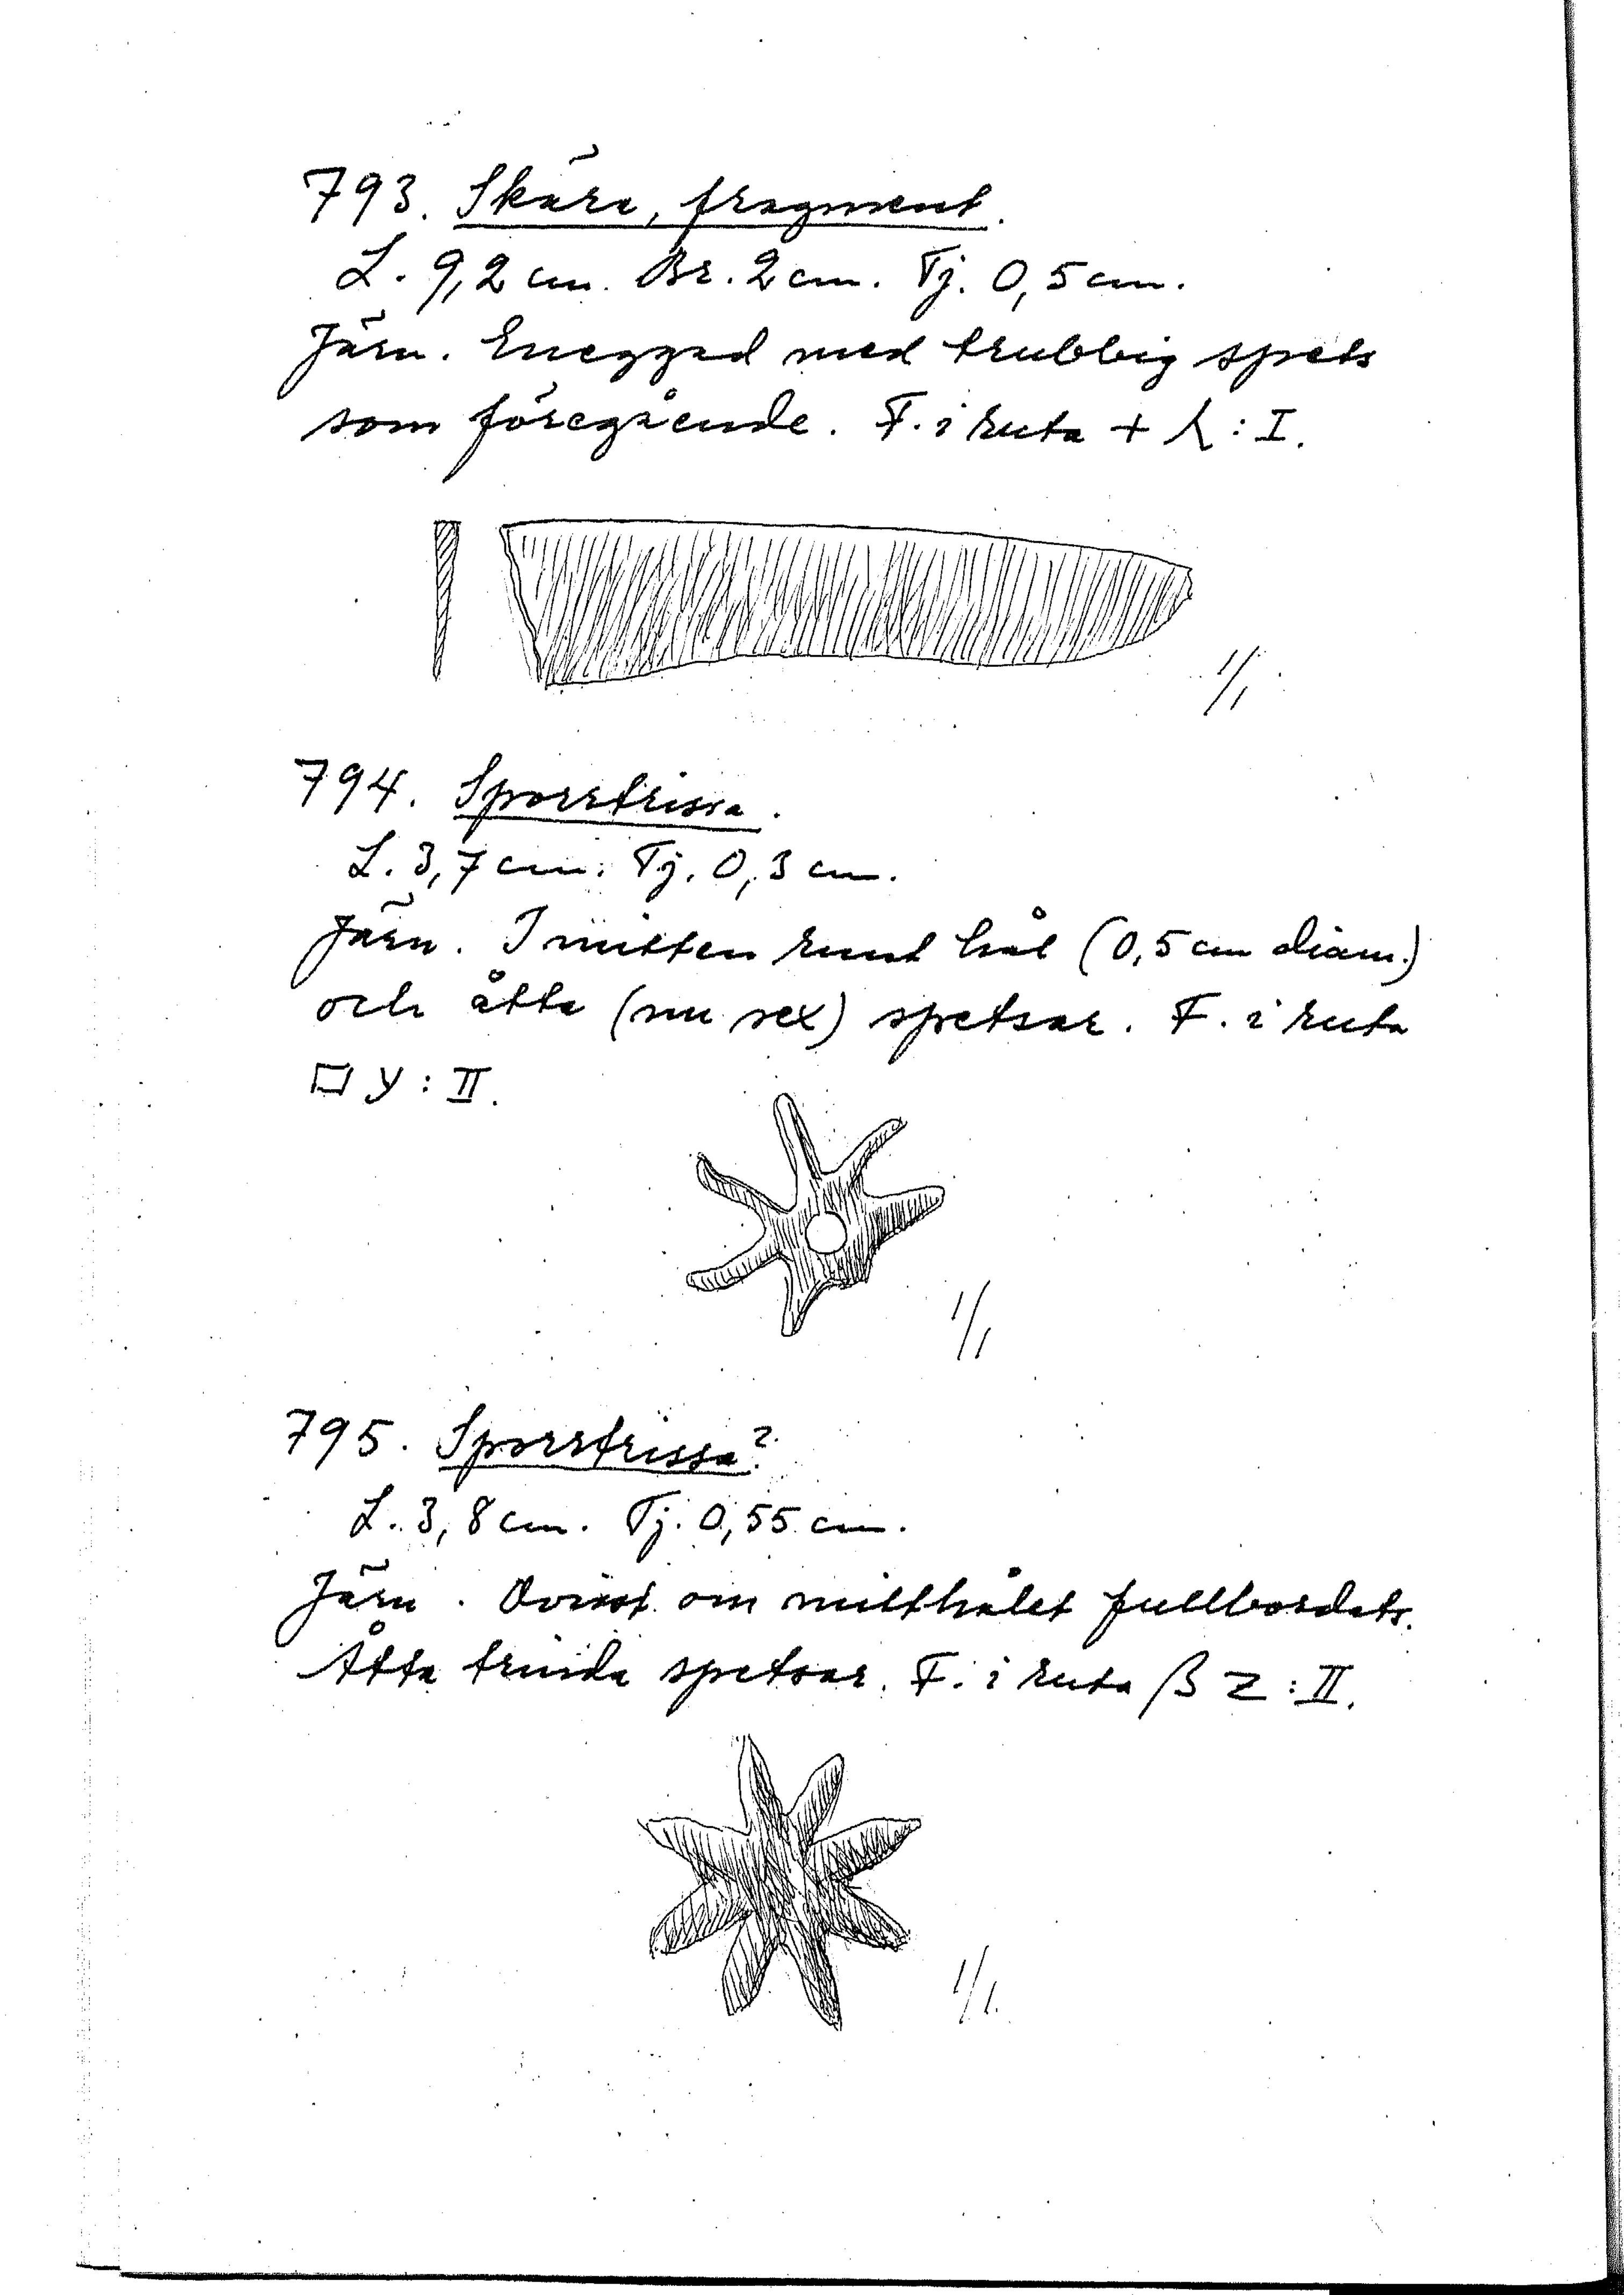 793. Skära, fragment.
L. 9,2 cm. Br. 2 cm. Tj. 0,5 cm.
Järn. Eneggad med trubbig spets
som föregående. F. i ruta + λ : I.
1/1
794. Sporrtrissa.
L. 3,7 cm. Tj. 0,3 cm.
Järn. I mitten runt hål (0,5 cm diam.)
och åtta (nu sex) spetsar. F. i ruta
□ y : II.
1/1
795. Sporrtrissa?
L. 3,8 cm. Tj. 0,55 cm.
Järn. Ovisst om mitthålet fullbordats.
Åtta trinda spetsar. F. i ruta β z : II.
1/1